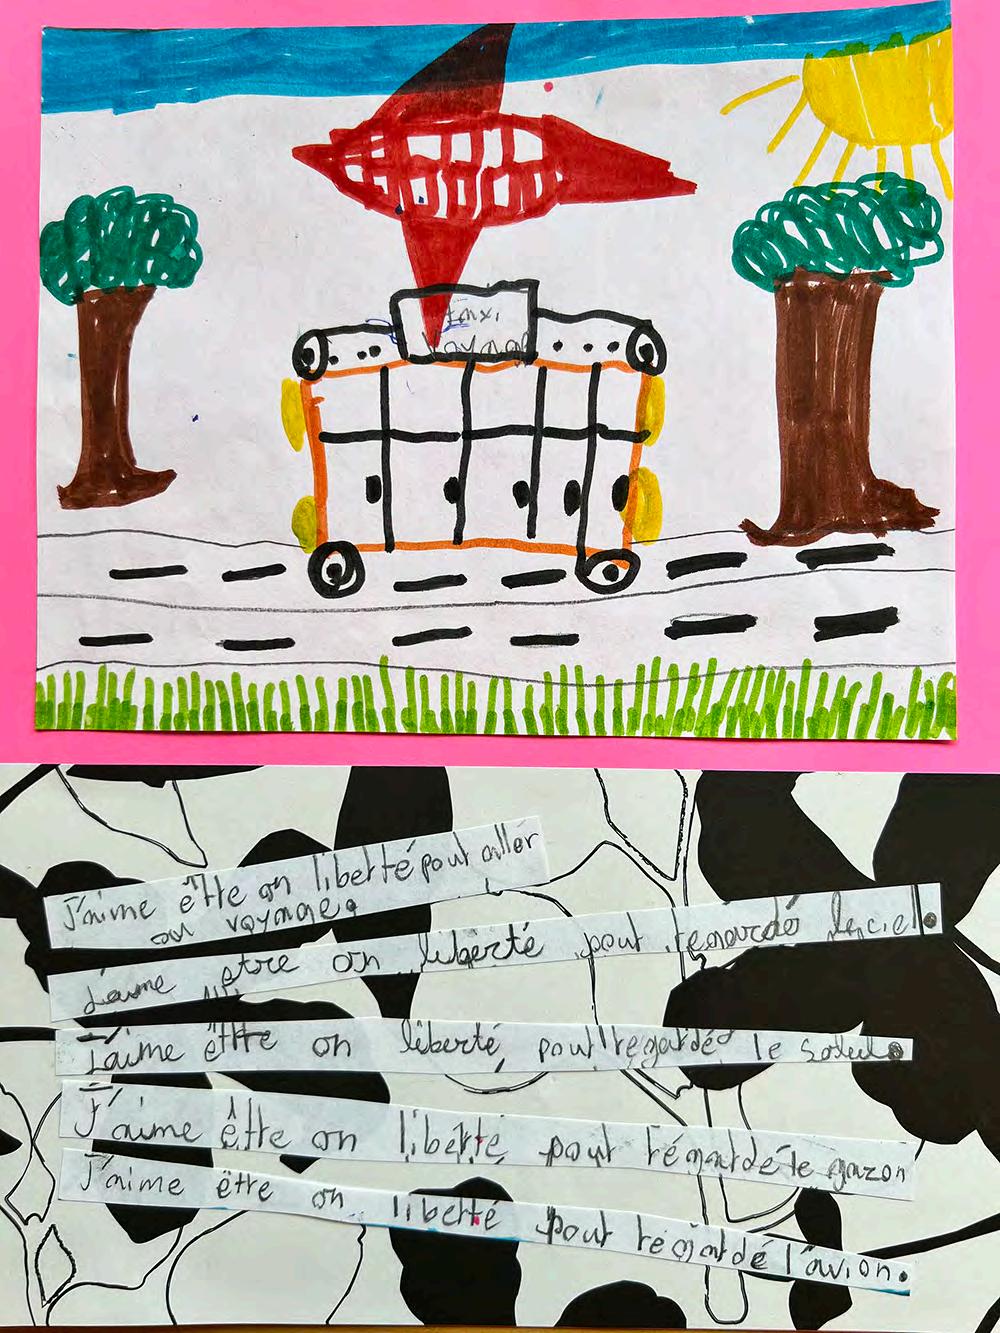 Taxi
voyage
J'aime être on liberté pour aller
au voyage.
J'aime etre on liberté pour regardé le ciel.
J'aime être on liberté pour regardé le soleil.
J'aime être on liberté pour régardé le gazon
J'aime être on liberté pour régardé l'avion.